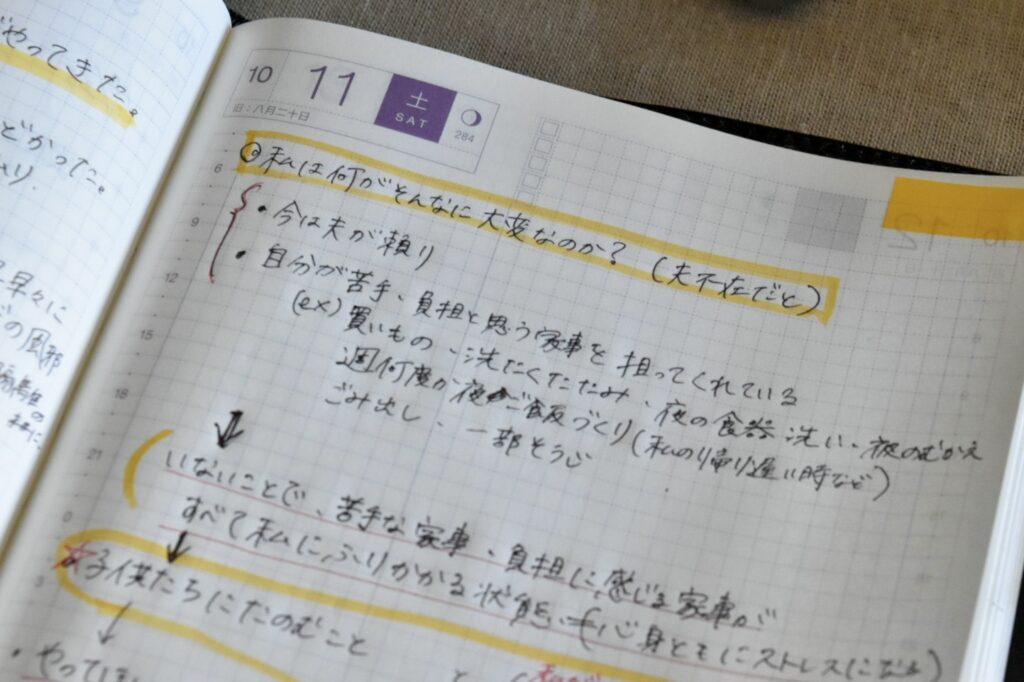 やってきた。
どかった。
早々に
の風邪
10 11 土 SAT 284
旧:八月二十日
6
9
12
15
18
21
0
3
◎私は何がそんなに大変なのか?(夫不在だと)
・今は夫が頼り
・自分が苦手、負担と思う家事を担ってくれている
(ex)買いもの、洗たくたたみ、夜の食器洗い、夜のむかえ
週何度か夜ご飯づくり(私の帰り遅い時など)
ごみ出し、一部そうじ
いないことで、苦手な家事、負担に感じる家事が
すべて私にふりかかる状態(心身ともにストレスになる)
☆子供たちにたのむこと
・やってほ
12